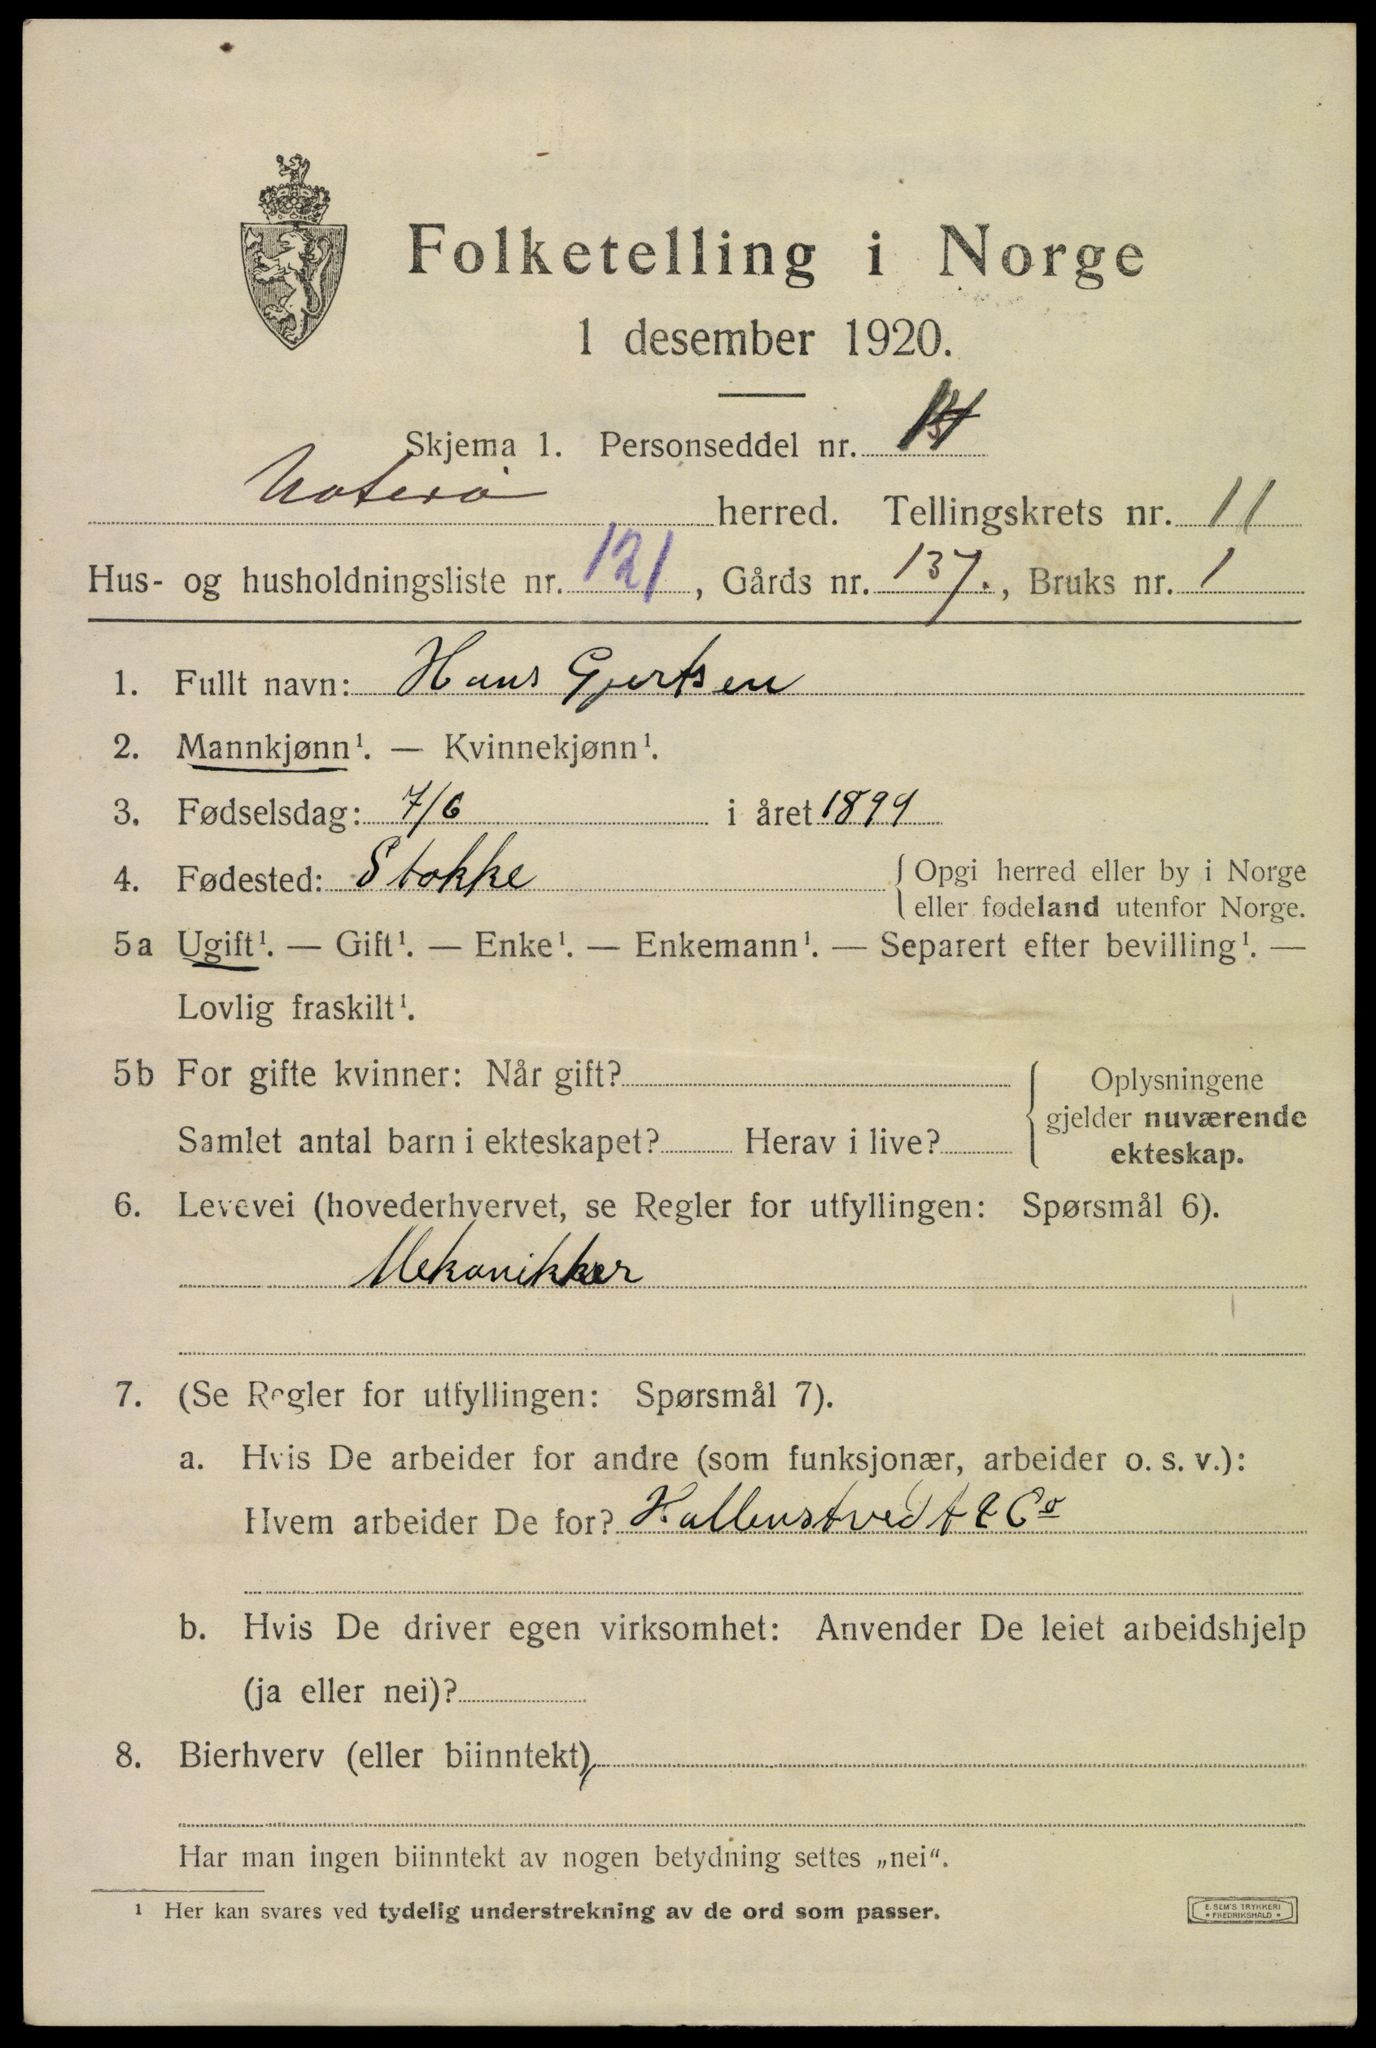 Folketelling i Norge
1 desember 1920.
Skjema 1. Personseddel nr.
Nøterø herred. Tellingskrets nr. 11
Hus- og husholdningsliste nr. 121, Gårds nr. 137., Bruks nr. 1
1. Fullt navn: Hans Gjertsen
2. Mannkjønn¹. — Kvinnekjønn¹.
3. Fødselsdag: 7/6 i året 1899
4. Fødested: Stokke { Opgi herred eller by i Norge
eller fødeland utenfor Norge.
5a Ugift¹. — Gift¹. — Enke¹. — Enkemann¹. — Separert efter bevilling¹. —
Lovlig fraskilt¹.
5b For gifte kvinner: Når gift?
Samlet antal barn i ekteskapet? Herav i live?
Oplysningene
gjelder nuværende
ekteskap.
6. Levevei (hovederhvervet, se Regler for utfyllingen: Spørsmål 6).
Mekanikker
7. (Se Regler for utfyllingen: Spørsmål 7).
a. Hvis De arbeider for andre (som funksjonær, arbeider o. s. v.):
Hvem arbeider De for? Kallenstvedt & Co
b. Hvis De driver egen virksomhet: Anvender De leiet arbeidshjelp
(ja eller nei)?
8. Bierhverv (eller biinntekt)
Har man ingen biinntekt av nogen betydning settes „nei“.
¹ Her kan svares ved tydelig understrekning av de ord som passer.
E. SEM'S TRYKKERI
* FREDRIKSHALD *